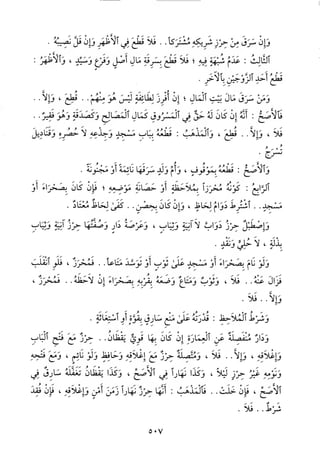 وإن سرق من حرز شريكه مشتركا.. فلا قطع في الأظهر وإن قل نصيبه .
الثالث : عدم شبهة فيه ؛ فلا قطع بسرقة مال أصل وفرع وسيد ، والأظهر :
قطع أحد الزوجين بالآخر .
ومن سرق مال بيت المال ؛ إن أفرز لطائفة ليس هو منهم.. قطع ، وإلا..
فالأصح : أنه إن كان له حق في المسروق كمال المصالح وكصدقة وهو فقير..
فلا ، وإلا.. قطع ، والمذهب : قطعه بباب مسجد وجذعه لا حصره وقناديل
تسرج .
والأصح : قطعه بموقوف ، وأم ولد سرقها نائمة أو مجنونة .
الرابع : كونه محرزا بملاحظة أو حصانة موضعه ؛ فإن كان بصحراء أو
مسجد.. اشترط دوام لحاظ ، وإن كان بحصن.. كفى لحاظ معتاد .
وإصطبل حرز دواب لا آنية وثياب ، وعرصة دار وصفتها حرز آنية وثياب
بذلة ، لا حلي ونقد .
ولو نام بصحراء أو مسجد على ثوب أو توسد متاعا.. فمحرز ، فلو انقلب
فزال عنه.. فلا ، وثوب ومتاع وضعه بقربه بصحراء إن لاحظه.. فمحرز ،
وإلا.. فلا .
وشرط الملاحظ : قدرته على منع سارق بقوة أو استغاثة .
ودار منفصلة عن العمارة إن كان بها قوي يقظان.. حرز مع فتح الباب
وإغلاقه ، وإلا.. فلا ، ومتصلة حرز مع إغلاقه وحافظ ولو نائم ، ومع فتحه
ونومه غير حرز ليلا ، وكذا نهارا في الأصح ، وكذا يقظان تغفله سارق في
الأصح ، فإن خلت.. فالمذهب : أنها حرز نهارا زمن أمن وإغلاقه ، فإن فقد
شرط.. فلا .
٥٠٧